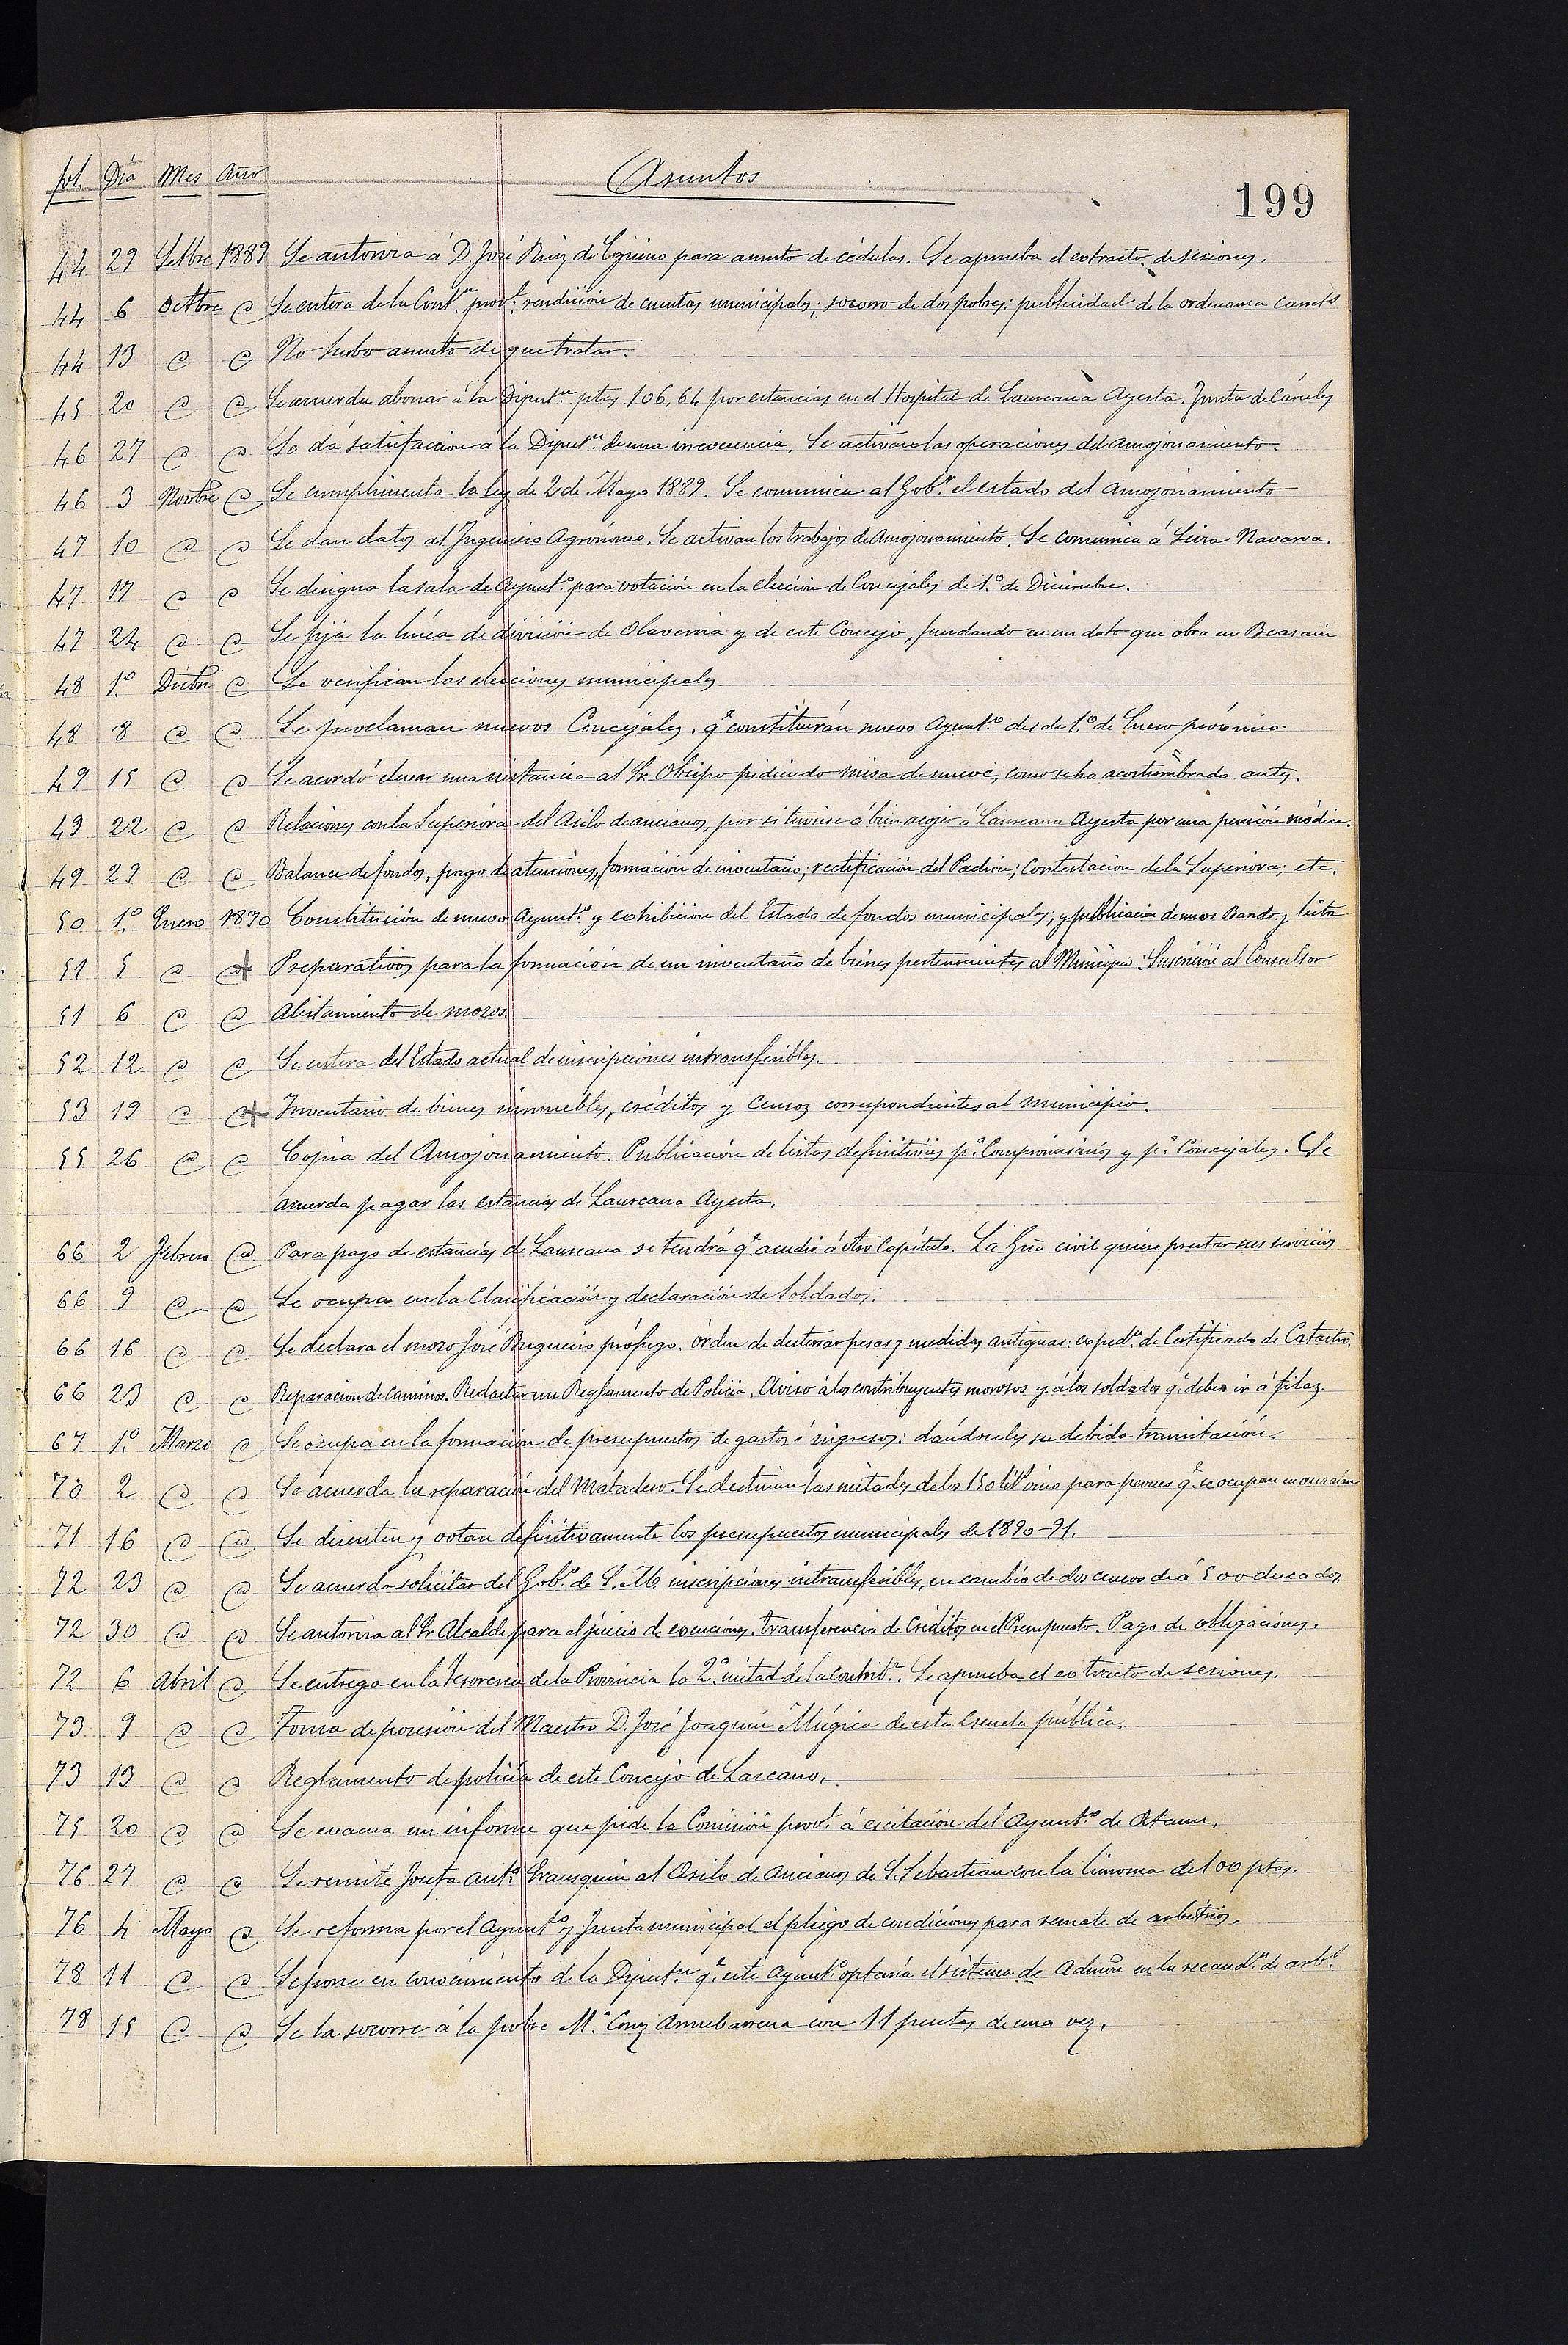 fol. Día Mes Año Asuntos
199
44 29 Setbre 1889 Se autoriza á D. José Ruiz de Eguino para asunto de cédulas. Se aprueba el extracto de sesiones.
44 6 Octbre @ Se entera de la Contn. provl. rendición de cuentas municipales; socorro de dos pobres; publicidad de la ordenanza
44 13 @ @ No hubo asunto de que tratar.
45 20 @ @ Se acuerda abonar á la Diputn. ptas 106,64 por estancias en el Hospital de Laureana Ayesta. Junta de Cárceles
46 27 @ @ Se dá satisfaccion á la Diputn. de una Se activan las operaciones del amojonamiento.
46 3 Novbre @ Se cumplimenta la ley de 2 de Mayo 1889. Se comunica al Gobr. el estado del amojonamiento
47 10 @ @ Se dan datos al Ingeniero Agrónomo. Se activan los trabajos de amojonamiento. Se comunica á Navarra.
47 17 @ @ Se designa la sala de Ayuntº. para votación en la elección de Concejales de 1º. de Diciembre.
47 24 @ @ Se fija la línea de división de Olaverria y de este Concejo, fundando en un dato que obra en Beasain
48 1º. Dicbre @ Se verifican las elecciones municipales
48 8 @ @ Se proclaman nuevos Concejales. q. constituirán nuevo Ayuntº. desde 1º. de Enero próximo.
49 15 @ @ Se acordó elevar una instancia al Sr. Obispo pidiendo misa de nueve, como se ha acostumbrado antes.
49 22 @ @ Relaciones con la Superiora del Asilo de ancianos, por si tuviese á bien acojer á Laureana Ayesta por una pensión módica.
49 29 @ @ Balance de fondos, pago de atenciones, formación de inventario; rectificación del Padrón; Contestacion de la Superiora; etc.
50 1º. Enero 1890 Constitución de nuevo Ayuntº. y exhibición del Estado de fondos municipales; y publicación de Bando y lista
51 5 @ @ Preparativos para la formación de un inventario de bienes pertenecientes al Municipio: Suscrición al Consultor
51 6 @ @ Alistamiento de mozos.
52 12 @ @ Se entera del Estado actual de inscripciones intransferibles.
53 19 @ @ Inventario de bienes inmuebles, créditos y Censos correspondientes al municipio.
55 26 @ @ Copia del Amojonamiento. Publicación de listas definitivas pª. Compromisarios y pª. Concejales. Se
acuerda pagar las estancias de Laureana Ayesta.
66 2 Febrero @ Para pago de estancias de Laureana se tendrá q. acudir á otro Capítulo. La civil quiere prestar sus servicios
66 9 @ @ Se ocupa en la Clasificación y declaración de Soldados.
66 16 @ @ Se declara el mozo José prófugo. órden de desterrar pesas y medidas antiguas: expedn. de Certificado de Catastro.
66 23 @ @ Reparacion de caminos. Redactar un Reglamento de Policia. Aviso á los contribuyentes morosos y á los soldados q. deben ir á filas.
67 1º. Marzo @ Se ocupa en la formación de presupuestos de gastos é ingresos: dándoseles su debida tramitación.
70 2 @ @ Se acuerda la reparación del Matadero. Se destinan las mitades de los 150 vino para peones q. se ocupan en
71 16 @ @ Se discuten y votan definitivamente los presupuestos municipales de 1890-91.
72 23 @ @ Se acuerda solicitar del Gobº. de S. M. inscripciones intransferibles, en cambio de dos censos de á 500 ducados
72 30 @ @ Se autoriza al Sr Alcalde para el juicio de exenciones. transferencia de Créditos en el Presupuesto. Pago de obligaciones.
72 6 Abril @ Se entrega en la Tesoreria de la Provincia la 2ª. mitad de la contribn. Se aprueba el extracto de sesiones.
73 9 @ @ Toma de posesión del Maestro D. José Joaquin Múgica de esta Escuela pública.
73 13 @ @ Reglamento de policía de este Concejo de Lazcano.
75 20 @ @ Se evacua un informe que pide la Comisión provl. á escitación del Ayuntº. de Ataun.
76 27 @ @ Se remite Josefa Antª. Irausquin al Asilo de Ancianos de S. Sebastian con la limosna de 100 ptas.
76 4 Mayo @ Se reforma por el Ayuntº. y Junta municipal el pliego de condiciones para remate de arbitrios.
78 11 @ @ Se pone en conocimiento de la Diputn. q. este Ayuntº. optaría el sistema de Admon en la recaudn. de arbs.
78 15 @ @ Se la socorre á la pobre Mª. Cruz Arruebarrena con 11 pesetas de una vez.